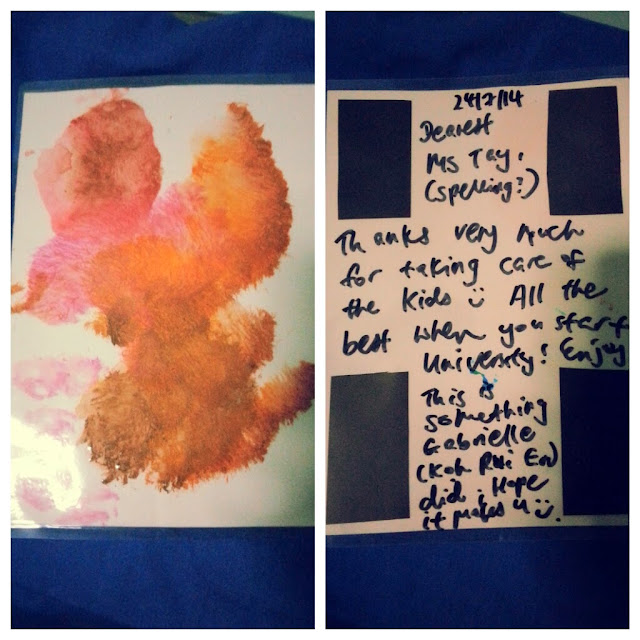 24/7/14
Dearest
Ms Tay,
(spelling?)
Thanks very much
for taking care of
the kids :) All the
best when you start
University! Enjoy
This is
something
Gabrielle
(Koh Rui En)
did. Hope
it makes u :).